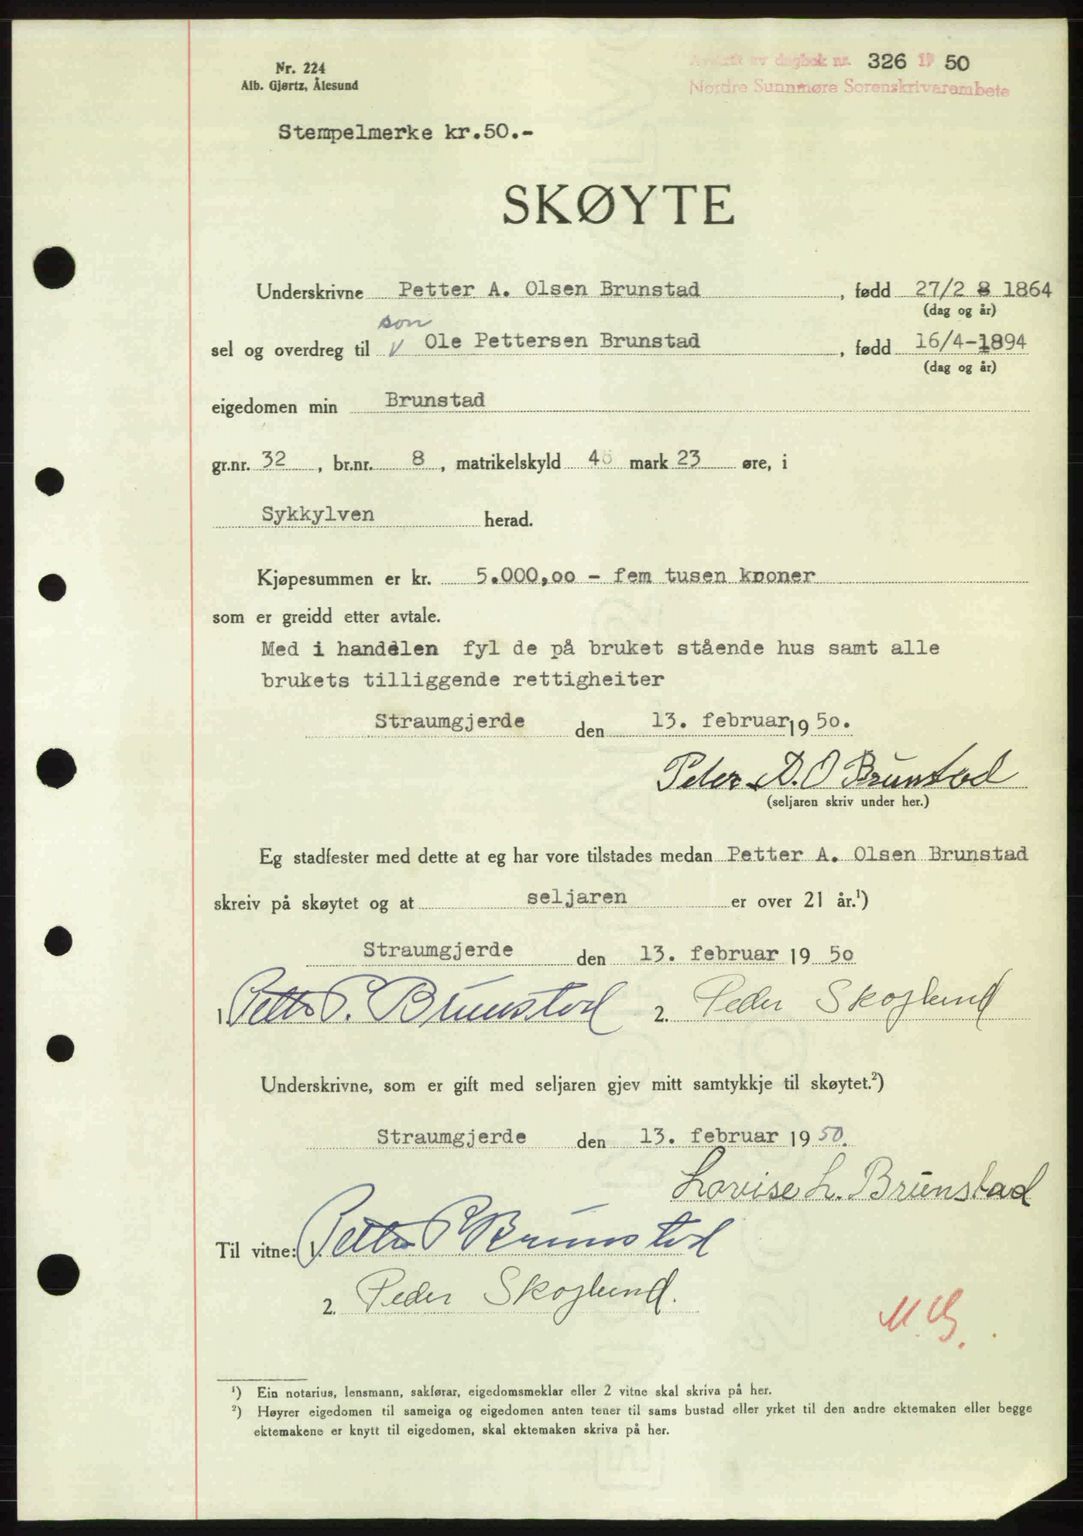 Nr. 224
Alb. Gjørtz, Ålesund
Avskrift av dagbok nr. 326 19 50
Nordre Sunnmøre Sorenskrivarembete
Stempelmerke kr.50.-
SKØYTE
Underskrivne Petter A. Olsen Brunstad, fødd 27/2 8 1864
(dag og år)
son
sel og overdreg til V Ole Pettersen Brunstad, fødd 16/4-1894
(dag og år)
eigedomen min Brunstad
gr.nr. 32, br.nr. 8, matrikelskyld 46 mark 23 øre, i
Sykkylven herad.
Kjøpesummen er kr. 5.000,00 - fem tusen kroner
som er greidd etter avtale.
Med i handelen fyl de på bruket stående hus samt alle
brukets tilliggende rettigheiter
Straumgjerde den 13. februar 1950.
Peter A. O Brunstad
(seljaren skriv under her.)
Eg stadfester med dette at eg har vore tilstades medan Petter A. Olsen Brunstad
skreiv på skøytet og at seljaren er over 21 år.¹)
Straumgjerde den 13. februar 19 50
1. Petter P. Brunstad 2. Peder Skoglund
Underskrivne, som er gift med seljaren gjev mitt samtykkje til skøytet.²)
Straumgjerde den 13. februar 19 50.
Lovise L. Brunstad
Til vitne: 1. Petter P Brunstad
2. Peder Skoglund.
M.G.
¹) Ein notarius, lensmann, sakførar, eigedomsmeklar eller 2 vitne skal skriva på her.
²) Høyrer eigedomen til sameiga og eigedomen anten tener til sams bustad eller yrket til den andre ektemaken eller begge
ektemakene er knytt til eigedomen, skal ektemaken skriva på her.